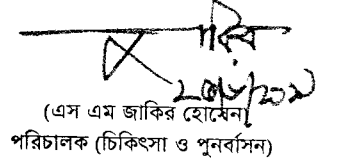 (এস এম জাকির হোসেন)
পরিচালক (চিকিৎসা ও পুনর্বাসন)